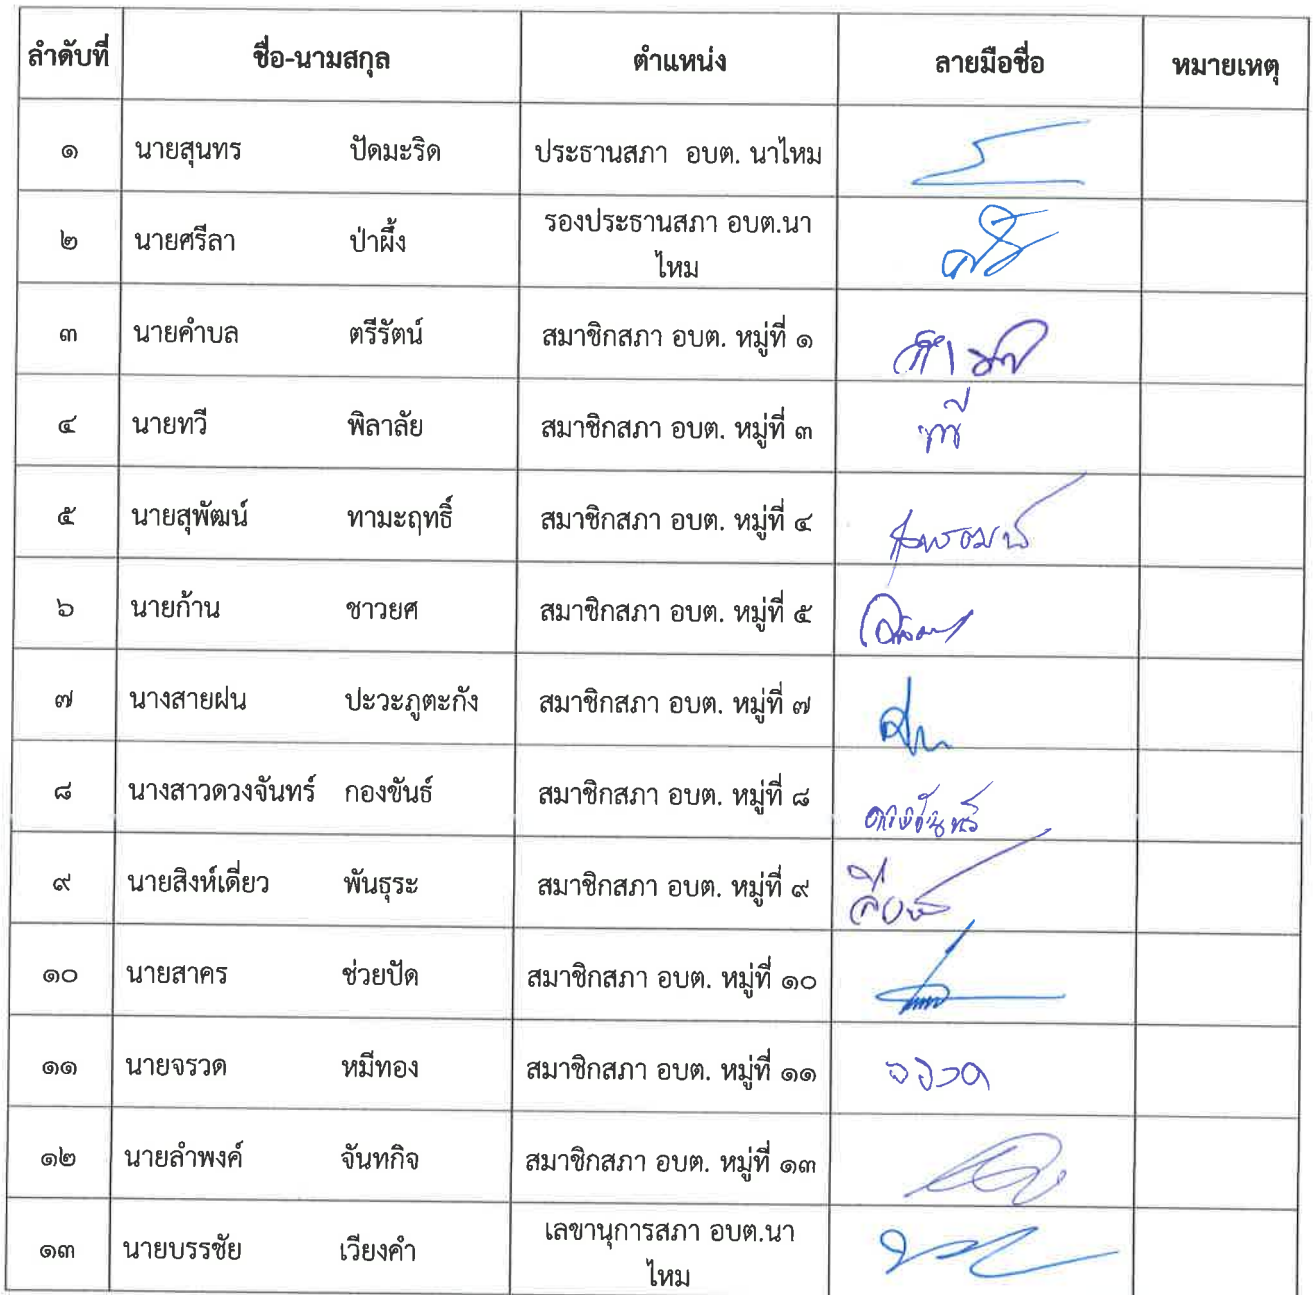 ลำดับที่ ชื่อ-นามสกุล ตำแหน่ง ลายมือชื่อ หมายเหตุ
๑ นายสุนทร ปัดมะริด ประธานสภา อบต. นาไหม
๒ นายศรีลา ป่าผึ้ง รองประธานสภา อบต.นา
ไหม
๓ นายคำบล ตรีรัตน์ สมาชิกสภา อบต. หมู่ที่ ๑
๔ นายทวี พิลาลัย สมาชิกสภา อบต. หมู่ที่ ๓
๕ นายสุพัฒน์ ทามะฤทธิ์ สมาชิกสภา อบต. หมู่ที่ ๔
๖ นายก้าน ชาวยศ สมาชิกสภา อบต. หมู่ที่ ๕
๗ นางสายฝน ปะวะภูตะกัง สมาชิกสภา อบต. หมู่ที่ ๗
๘ นางสาวดวงจันทร์ กองขันธ์ สมาชิกสภา อบต. หมู่ที่ ๘ ดวงจันทร์
๙ นายสิงห์เดี่ยว พันธุระ สมาชิกสภา อบต. หมู่ที่ ๙
๑๐ นายสาคร ช่วยปัด สมาชิกสภา อบต. หมู่ที่ ๑๐
๑๑ นายจรวด หมีทอง สมาชิกสภา อบต. หมู่ที่ ๑๑ จรวด
๑๒ นายลำพงค์ จันทกิจ สมาชิกสภา อบต. หมู่ที่ ๑๓
๑๓ นายบรรชัย เวียงคำ เลขานุการสภา อบต.นา
ไหม